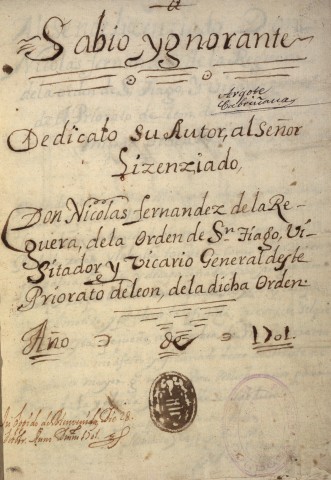 Sabio ygnorante
Argote
Cabriñana
Dedicalo su Autor, al Señor
Lizenziado,
Don Nicolas fernandez de la Re-
guera, de la Orden de Sn. Tiago, Vi-
sitador, y Vicario General deste
Priorato de leon, de la dicha Orden.
Año de 1701.